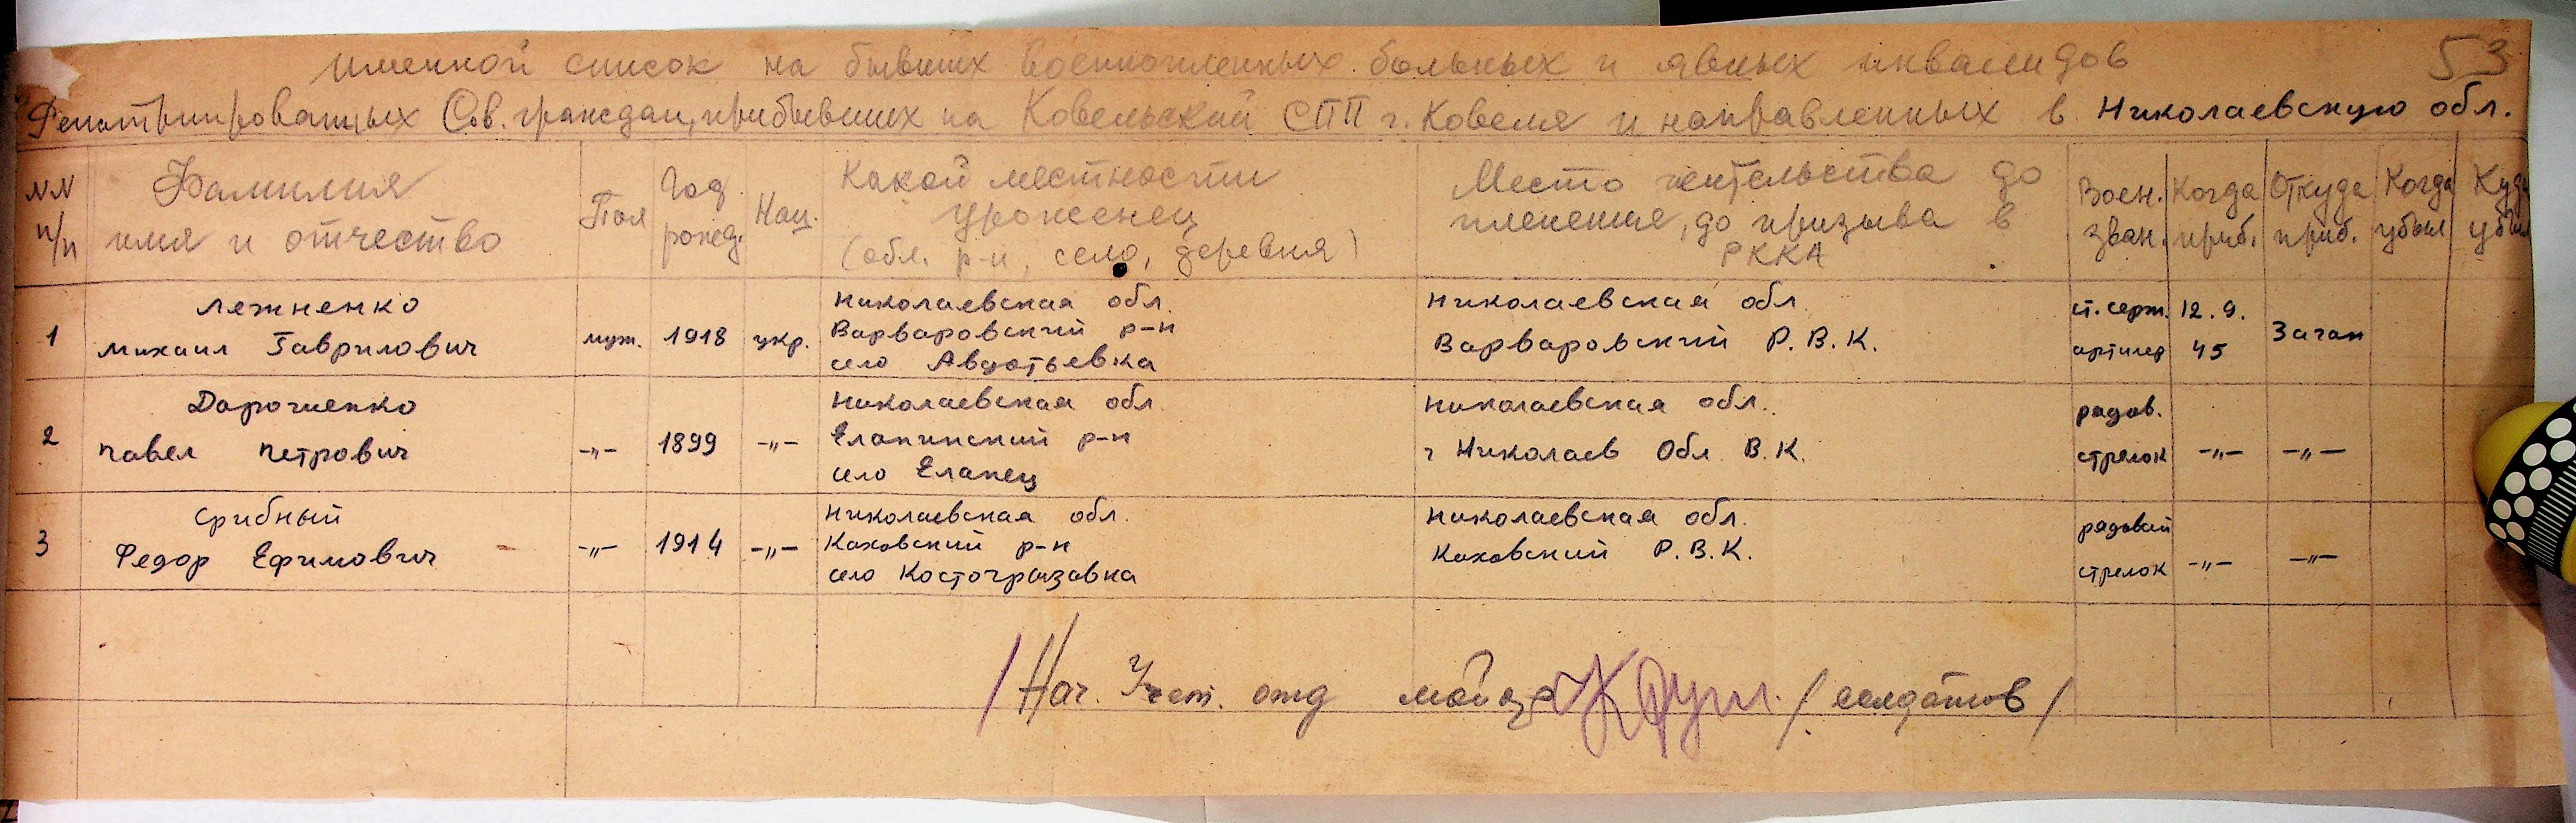 именной список на бывших военнопленных больных и явных инвалидов 53
Репатриированных Сов. граждан, прибывших на Ковельский СПП г. Ковеля и направленных в Николаевскую обл.
NN п/п
Фамилия имя и отчество
Пол
Год рожд.
Нац.
Какой местности уроженец (обл. р-н, село, деревня)
Место жительства до пленения, до призыва в РККА
Воен. зван.
Когда приб.
Откуда приб.
Когда убыл
Куда убыл
1
Лежненко
Михаил Гаврилович
муж.
1918
укр.
Николаевская обл.
Варваровский р-н
село Авдотьевка
Николаевская обл
Варваровский Р.В.К.
ст. серж.
артилер
12.9.
45
Заган
2
Дорошенко
Павел Петрович
-"-
1899
-"-
Николаевская обл.
Еланинский р-н
село Еланец
Николаевская обл.
г Николаев Обл В.К.
рядов.
стрелок
-"-
-"-
3
Срибный
Федор Ефимович
-"-
1914
-"-
Николаевская обл.
Каховский р-н
село Костогрызовка
Николаевская обл.
Каховский Р.В.К.
рядовый
стрелок
-"-
-"-
/Нач. Учет. отд майор /Солдатов/